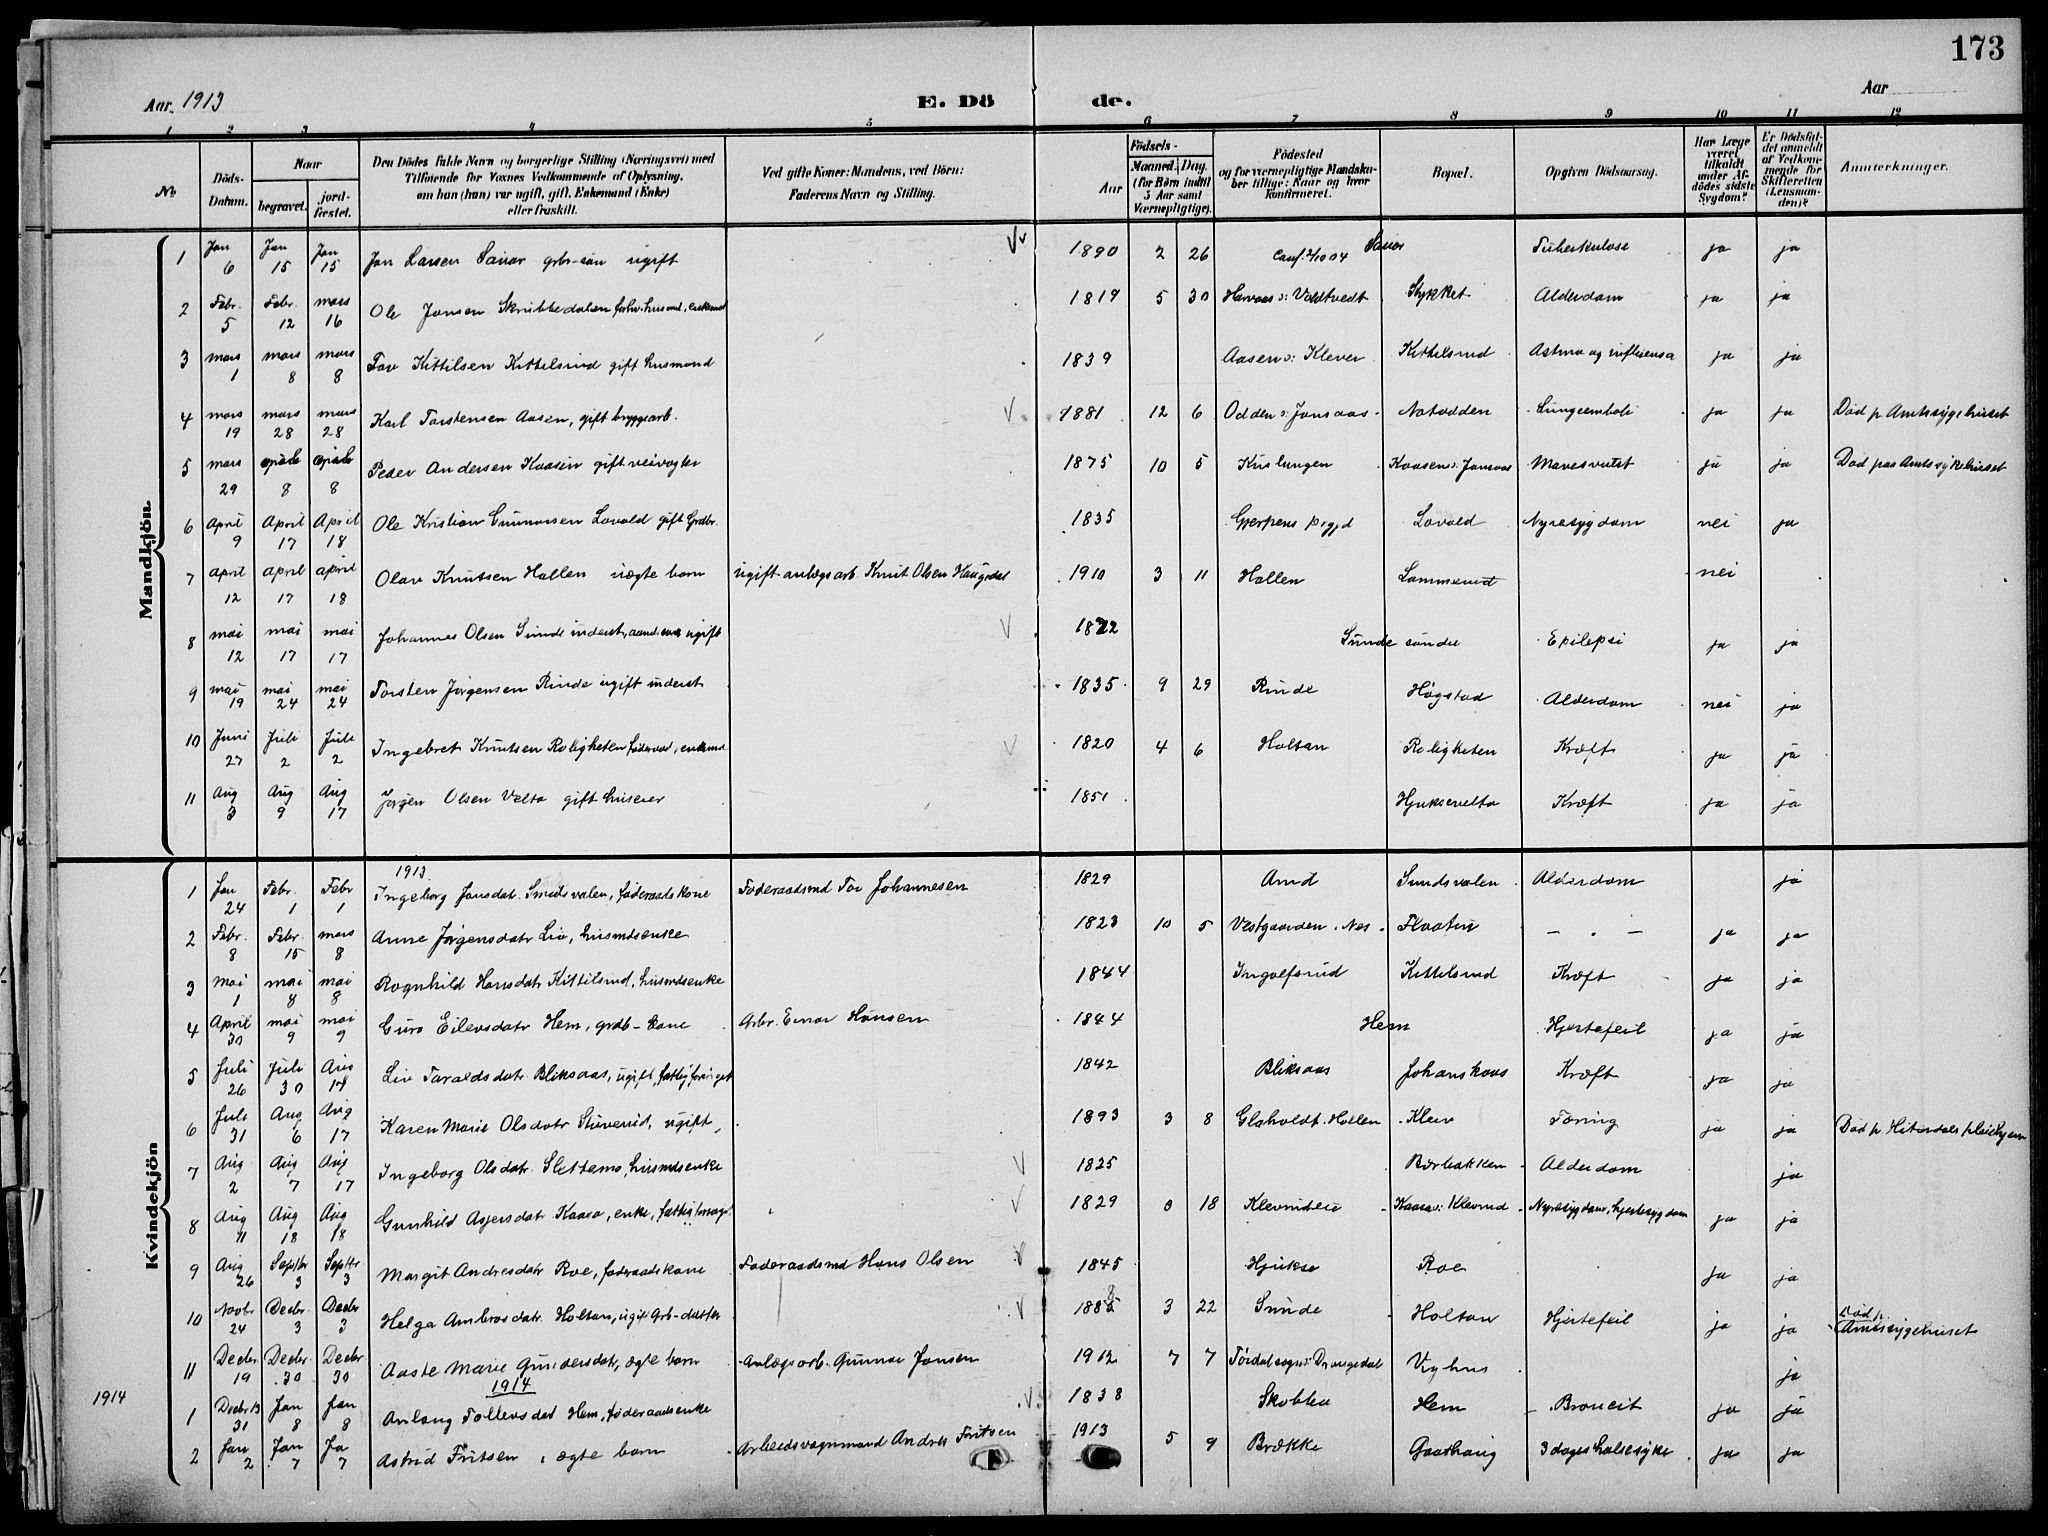 173
Aar 1913 E. Dö de. Aar
1 2 3 4 5 6 7 8 9 10 11 12
№ Döds-Datum. Naar begravet. jord-fæstet. Den Dödes fulde Navn og borgerlige Stilling (Næringsvei) med Tilföiende for Voxnes Vedkommende af Oplysning, om han (hun) var ugift, gift, Enkemand (Enke) eller fraskilt. Ved gifte Koner: Mandens, ved Börn: Faderens Navn og Stilling. Födsels- Aar Maaned. Dag. (for Börn indtil 5 Aar samt Værnepligtige). Födested og for værnepligtige Mandskaber tillige: Naar og hvor konfirmeret. Bopæl. Opgiven Dödsaarsag. Har Læge været tilkaldt under Afdödes sidste Sygdom? Er Dödsfaldet anmeldt af Vedkommende for Skifteretten (Lensmanden)? Anmærkninger.
Mandkjön.
1 Jan 6 Jan 15 Jan 15 Jon Larsen Sauar grbr-søn ugift 1890 2 26 Conf. 2/10 04 Sauar Tuberkulose ja ja
2 Febr. 5 Febr. 12 mars 16 Ole Jonsen Skrubbedalen forhv. husmd, enkemd 1819 5 30 Havaas s: Valdtvedt Stykket Alderdom ja ja
3 mars 1 mars 8 mars 8 Tov Kittilsen Kittelsrud gift husmand 1839 Aasen s: Klever Kittilsrud Astma og influensa ja ja
4 mars 19 mars 28 mars 28 Karl Torstensen Aasen, gift bryggearb. 1881 12 6 Odden s: Jonsaas Notodden Lungeemboli ja ja Død p Amtssygehuset
5 mars 29 april 8 april 8 Peder Andersen Kaasin gift veivogter 1875 10 5 Kuslungen Kaasen s: Jonsaas Mavesvulst ja ja Død paa Amtssykehuset
6 April 9 April 17 April 18 Ole Kristian Gunnarsen Lovald gift Grdbr. 1835 Gjerpens prgjd Lovald Nyresygdom nei ja
7 April 12 april 17 april 18 Olav Knutsen Hollen uægte barn ugift anlægsarb. Knut Olsen Haugsdal 1910 3 11 Hollen Lammerud nei
8 mai 12 mai 17 mai 17 Johannes Olsen Sunde inderst, aandssvag ugift 1872 Sunde søndre Epilepsi ja ja
9 mai 19 mai 24 mai 24 Torsten Jørgensen Rinde ugift inderst 1835 9 29 Rinde Høgstad Alderdom nei ja
10 Juni 27 Juli 2 Juli 2 Ingebret Knutsen Roligheten føderaad, enkemd 1820 4 6 Holtan Roligheten Kræft ja ja
11 Aug 3 Aug 9 Aug 17 Jørgen Olsen Velta gift huseier 1851 Hjuksevelta Kræft ja ja
Kvindekjön
1913.
1 Jan 24 Febr. 1 Febr 1 Ingeborg Jonsdatr. Sundsvalen, føderaadskone Føderaadsmd Tov Johannesen 1829 Amd Sundsvalen Alderdom ja
2 Febr. 8 Febr. 15 mars 8 Anne Jørgensdatr Lia, husmdsenke 1823 10 5 Vestgaarden. Nes Flaatin — . — ja ja
3 Mai 1 mai 8 mai 8 Rognhild Hansdatr Kittilsrud, husmdsenke 1844 Ingolfsrud Kittilsrud Kræft ja ja
4 April 30 mai 9 mai 9 Guro Eilevsdatr Hem, grdb-kone Arbr. Einar Hansen 1844 Hem Hjertefeil ja ja
5 Juli 26 Juli 30 Aug 17 Liv Taraldsdatr. Bliksaas, ugift, fattigforsørget 1842 Bliksaas Johanskaas Kræft ja ja
6 Juli 31 Aug 6 Aug 17 Karen Marie Olsdatr Stuverud, ugift, 1893 3 8 Glaholdt. Hollen Kleiv Tæring ja ja Død p Hiterdals pleiehjem
7 Aug 2 Aug 7 Aug 17 Ingeborg Olsdatr. Slettemo, husmdsenke 1825 Bærbakken Alderdom ja
8 Aug 11 Aug 18 Aug 18 Gunhild Asjersdatr Kaasa, enke, fattigforsørg. 1829 3 18 Klevrudeie Kaasa s: Klevrud Nyresygdom, hjertesygdom ja ja
9 Aug 26 Septbr 3 Septbr 3 Margit Andresdatr Roe, føderaadskone Føderaadsmd Hans Olsen 1845 Hjukse Roe ja ja
10 Novbr 24 Decbr. 3 Decbr 3 Helga Ambrosdatr. Holtan, ugift Grb-datter 1885 3 22 Sunde Holtan Hjertefeil ja ja Død p Amtssygehuset
11 Decbr 19 Decbr. 30 Decbr 30 Aaste Marie Gundersdatr, ægte barn Anlægsarb. Gunnar Jonsen 1912 7 7 Tørdal sogn s: Drangedal Vighus ja
1914
1914
1 Decbr 13 31 Jan 8 Jan 8 Anlaug Tollevsdat Hem, føderaadsenke 1838 Skoblea Hem Broncit ja ja
2 Jan 2 Jan 7 Ja 7 Astrid Fritsen, ægte barn Arbeidsvognmand Andres Fritsen 1913 5 9 Brække Gaarhaug 3 dages halsesyke ja ja